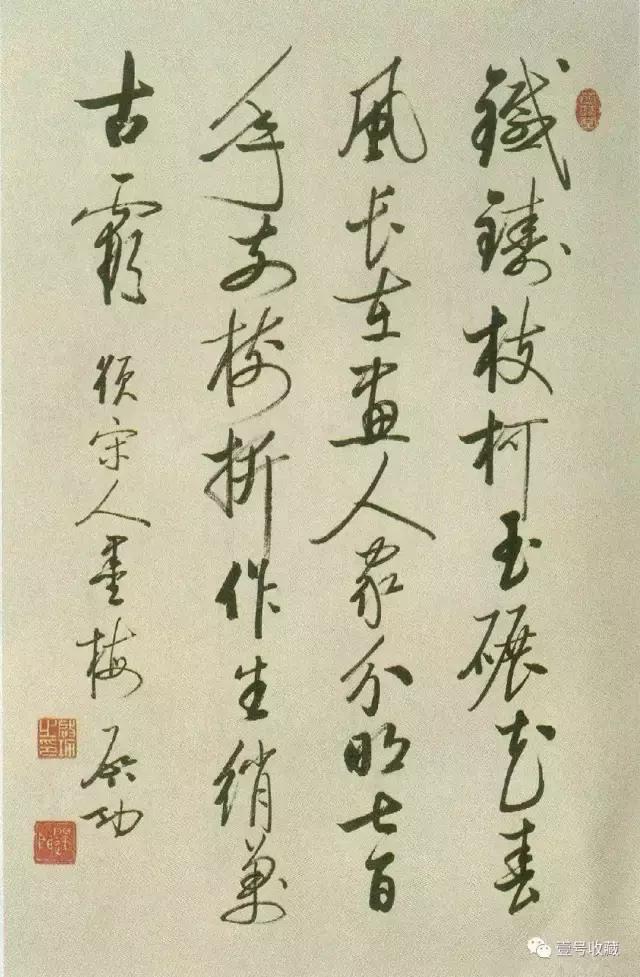 鐵鑄枝柯玉碾花春
風長在畫人家分明七百
年前樹折作生綃萬
古霞 題宋人墨梅 启功
壹号收藏